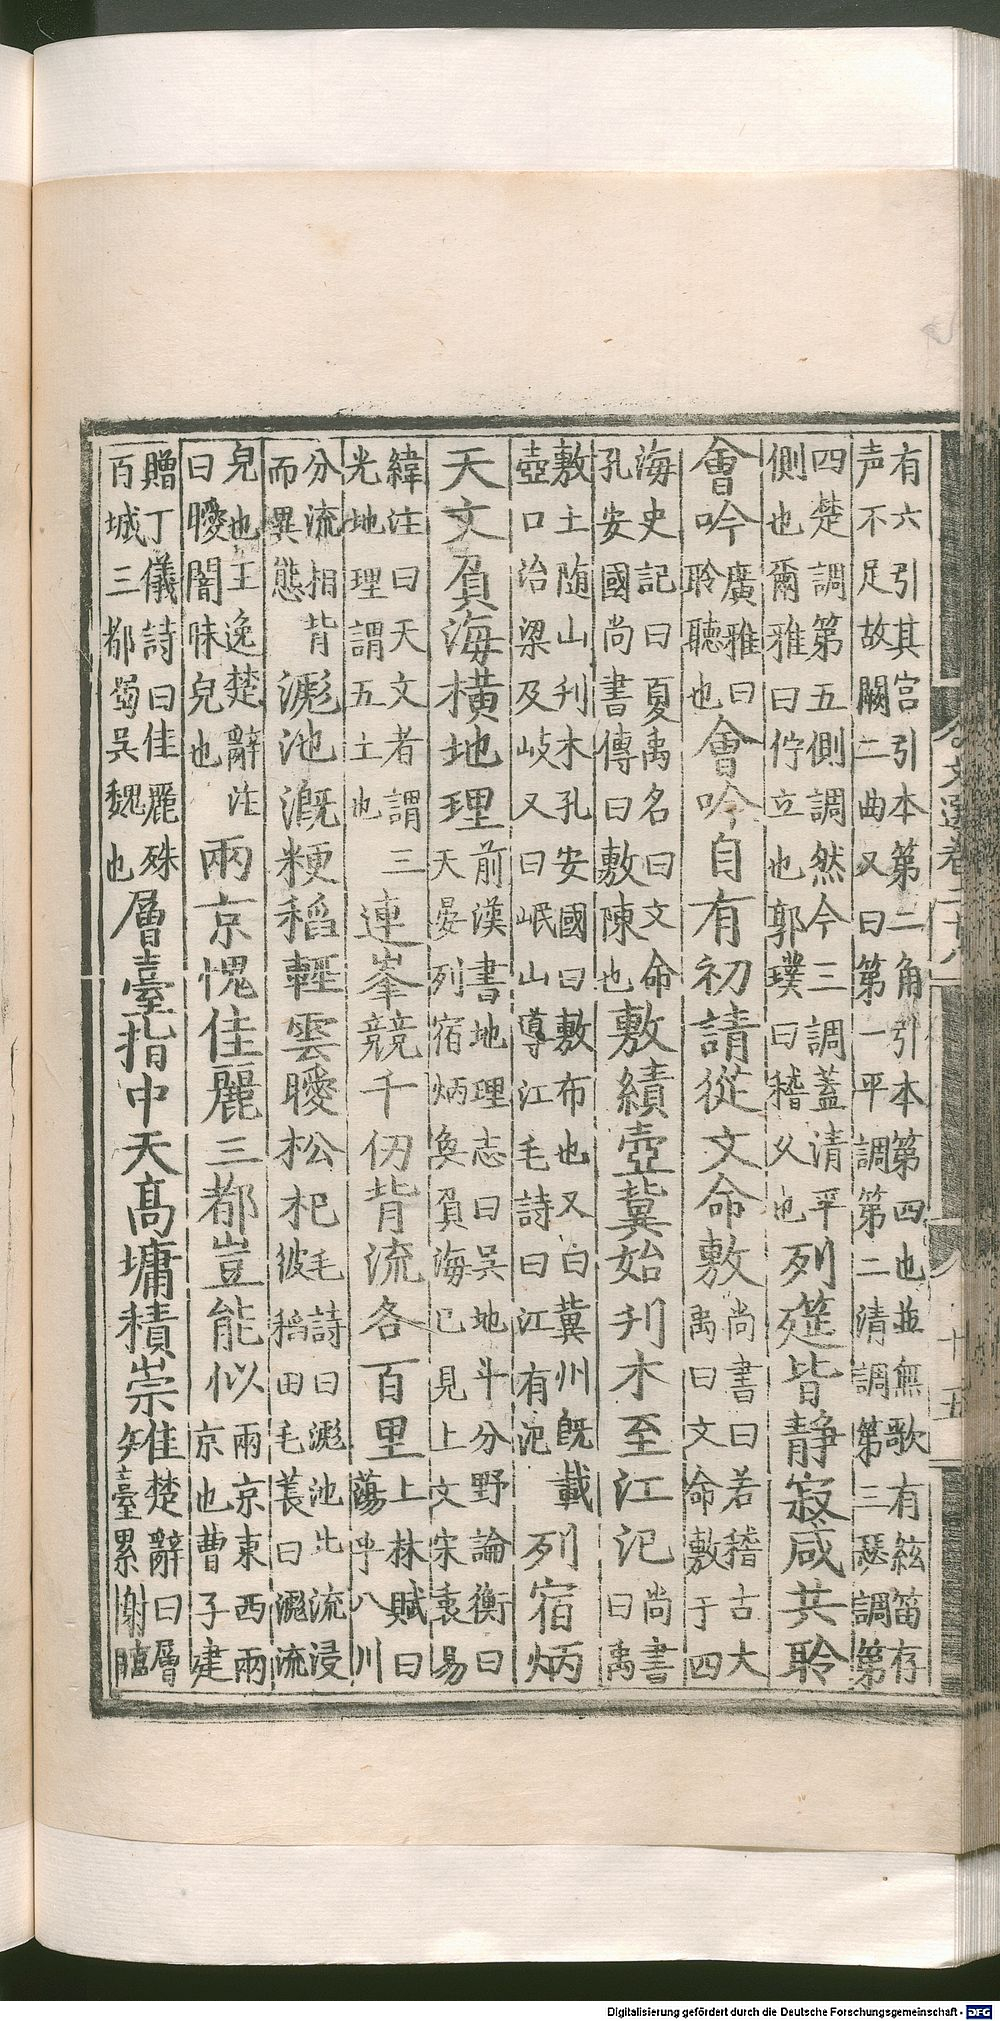 文選卷二十八
十五
有六引其宫引本第二角引本第四也並無歌有絃笛存
声不足故闕二曲又曰第一平調第二清調第三瑟調第
四楚調第五側調然今三調蓋清平
側也爾雅曰佇立也郭璞曰稽乆也
列筵皆静寂咸共聆
會吟
廣雅曰
聆聽也
會吟自有初請從文命敷
尚書曰若稽古大
禹曰文命敷于四
海史記曰夏禹名曰文命
孔安國尚書傳曰敷陳也
敷績壺冀始刋木至江汜
尚書
曰禹
敷土随山刋木孔安國曰敷布也又曰冀州既載
壺口治梁及岐又曰岷山導江毛詩曰江有汜
列宿炳
天文負海横地理
前漢書地理志曰吳地斗分野論衡曰
天晏列宿炳奐負海已見上文宋衷易
緯注曰天文者謂三
光地理謂五土也
連峯競千仞背流各百里
上林賦曰
蕩乎八川
分流相背
而異態
滮池溉粳稻輕雲曖松杞
毛詩曰滮池北流浸
彼稻田毛萇曰滮流
皃也王逸楚辭注
曰曖闇昧皃也
兩京愧佳麗三都豈能似
兩京東西兩
京也曹子建
贈丁儀詩曰佳麗殊
百城三都蜀吳魏也
層臺指中天髙墉積崇雉
楚辭曰層
臺累榭臨
Digitalisierung gefördert durch die Deutsche Forschungsgemeinschaft - DFG